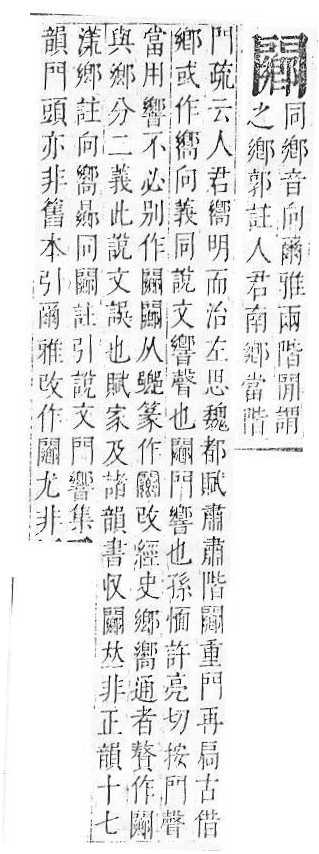 同鄉音向爾雅兩階閒謂
之鄉郭註人君南鄉當階
門疏云人君嚮明而治左思魏都賦肅肅階重門再扃古借
鄉或作嚮向義同說文響聲也門響也孫愐許亮切按門聲
當用響不必別作从篆作改經史鄉嚮通者贅作
與鄉分二義此說文誤也賦家及諸韻書收𠀤非正韻十七
漾鄉註向嚮曏同註引說文門響集
韻門頭亦非舊本引爾雅改作尤非